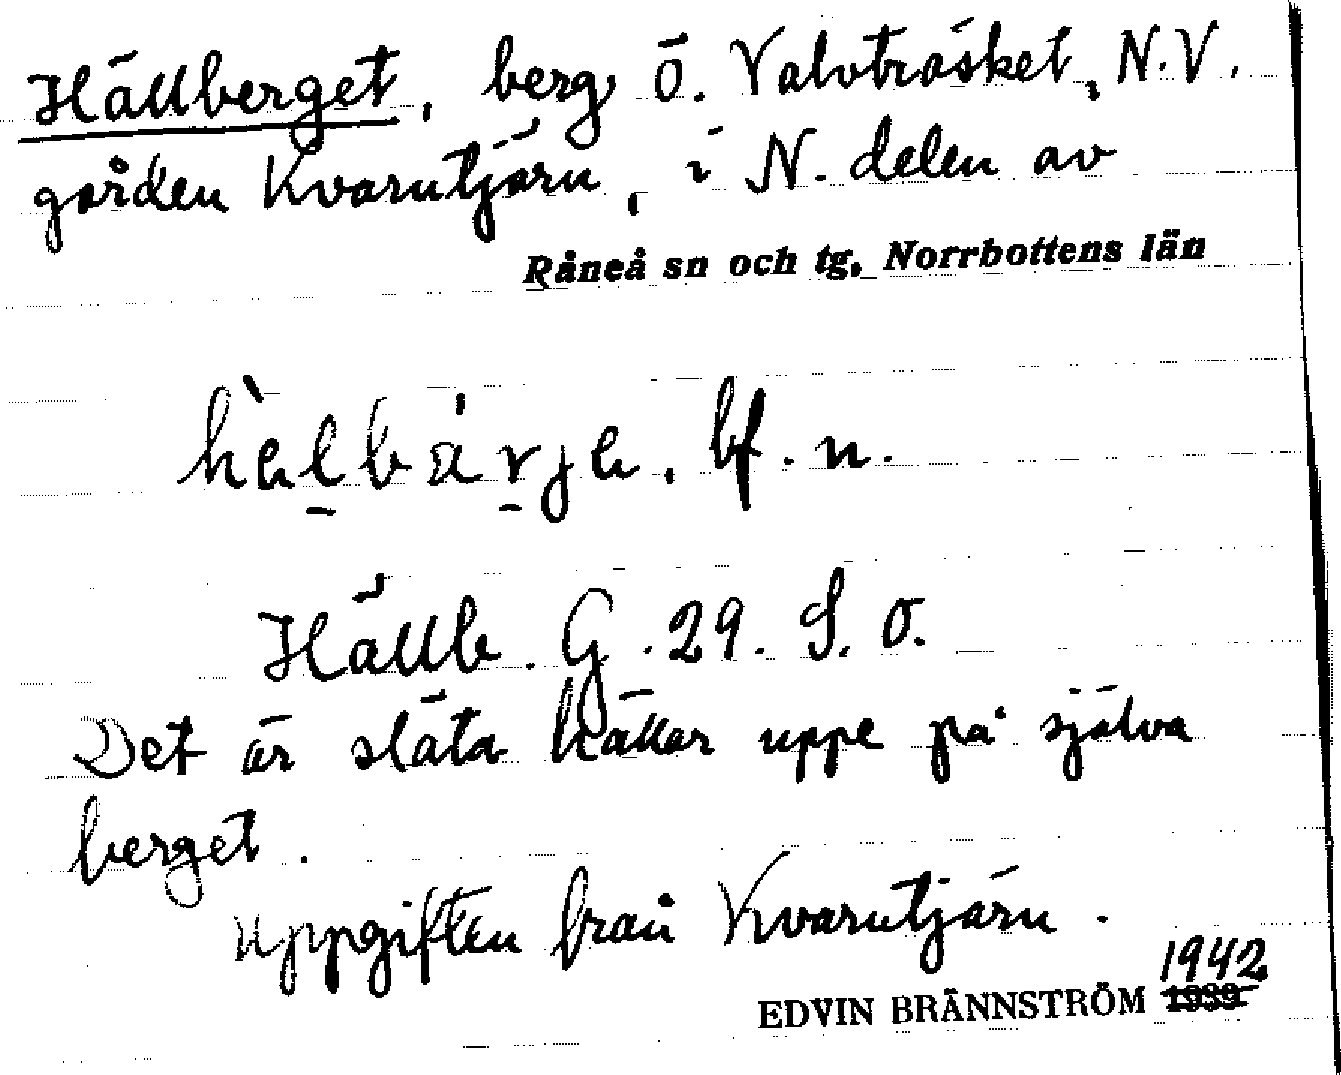 Hällberget, berg Ö. Valvträsket, N.V.
gården Kvarntjärn, i N. delen av
Råneå sn och tg, Norrbottens län
bf. n.
Hällb. G. 29. S. O.
Det är släta hällar uppe på själva
berget.
Uppgiften från Kvarntjärn.
1942
EDVIN BRÄNNSTRÖM 1939